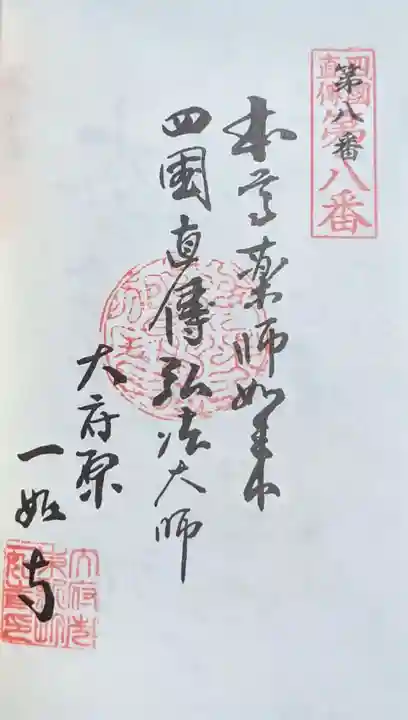 四國直傳
第八番
第八番
本尊薬師如来
四國直傳弘法大師
大府原
一如寺